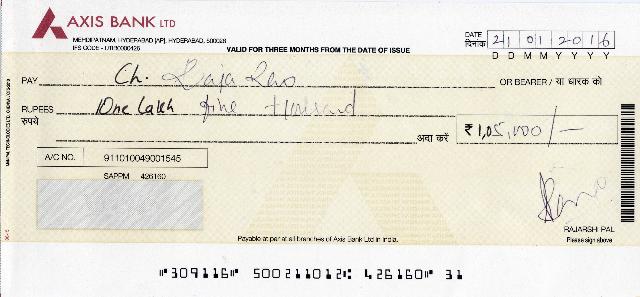 AXIS BANK LTD
MEHDIPATNAM, HYDERABAD [AP], HYDERABAD, 500028
IFS CODE - UTIB0000426
VALID FOR THREE MONTHS FROM THE DATE OF ISSUE
DATE दिनांक 21012016
D D M M Y Y Y Y
PAY Ch. Raja Rao OR BEARER / या धारक को
RUPEES रुपये One Lakh five thousand
अदा करें ₹ 1,05,000/-
A/C NO. 911010049001545
SAPPM 426160
RAJARSHI PAL
Payable at par at all branches of Axis Bank Ltd in India.
Please sign above
"309116" 500211012: 426160" 31